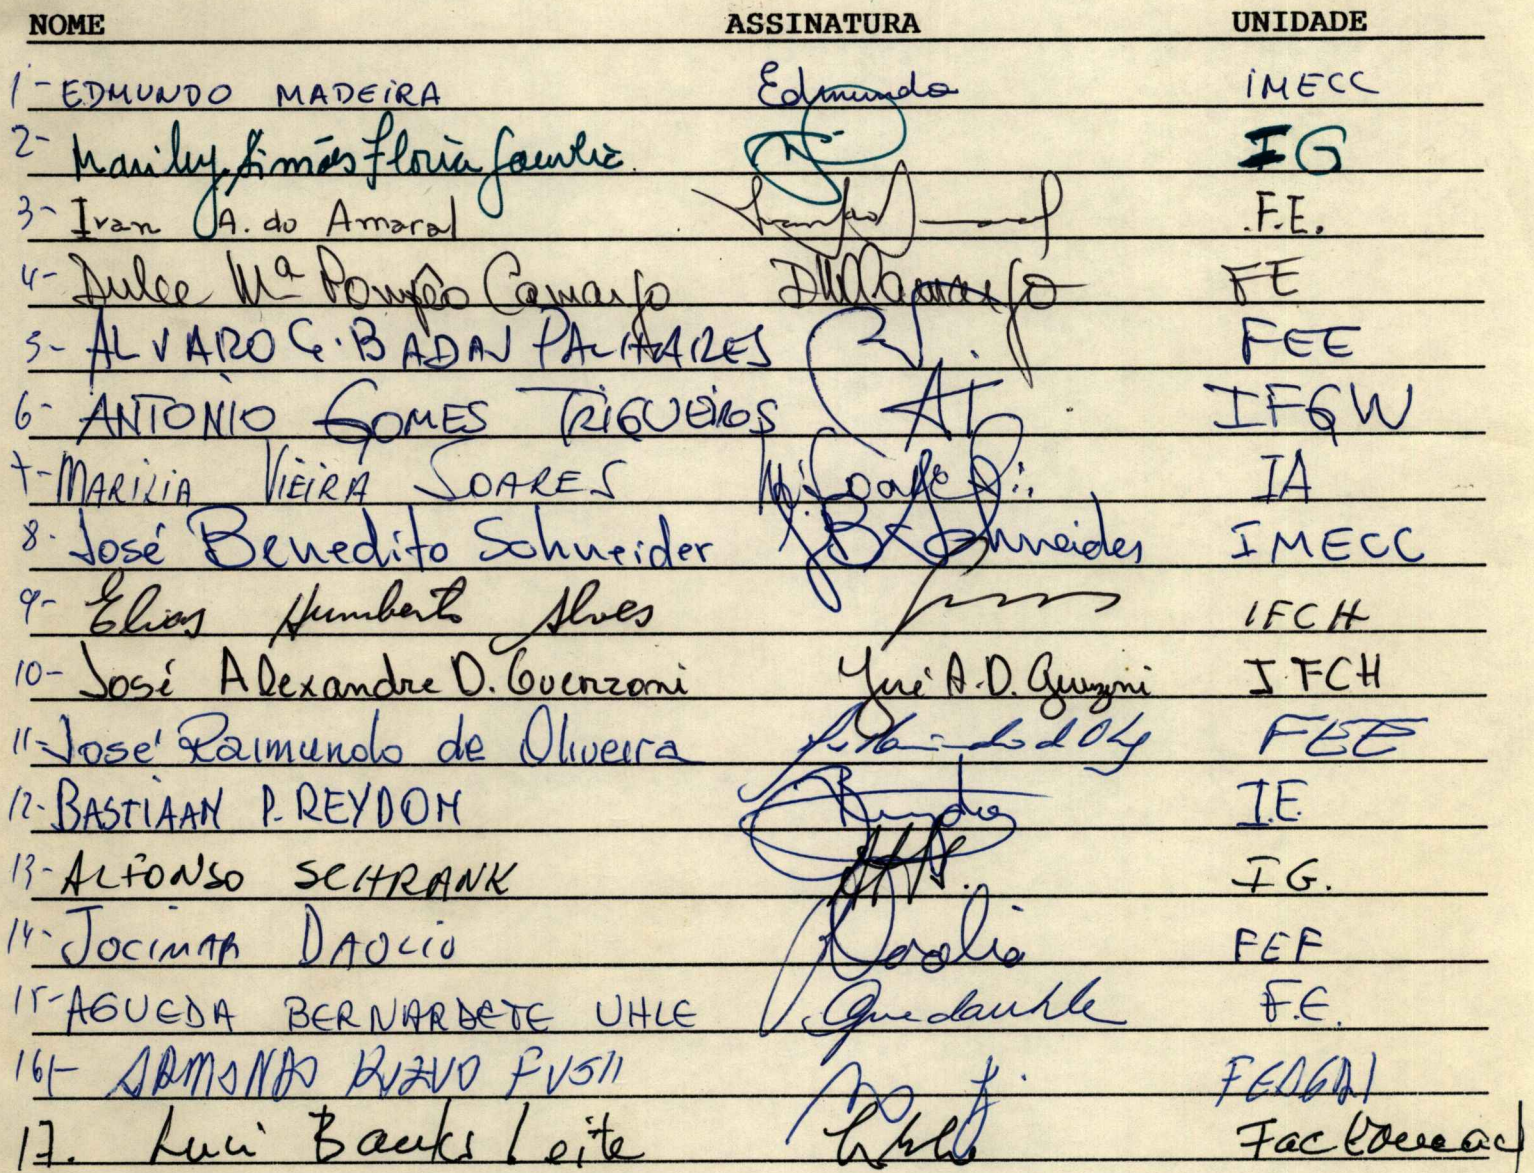 NOME ASSINATURA UNIDADE
1- EDMUNDO MADEIRA Edmundo IMECC
2- Marily Simões Floria IG
3- Ivan A. do Amaral F.E.
4- Dulce Mª Pompêo Camargo DMPCamargo FE
5- ALVARO G. BADAN PALHARES FEE
6- ANTONIO GOMES TRIGUEIROS AT IFGW
7- MARILIA VIEIRA SOARES M. Soares IA
8- José Benedito Schneider J.B. Schneider IMECC
9- Elias Humberto Alves IFCH
10- José Alexandre D. Guerzoni José A.D. Guerzoni IFCH
11- José Raimundo de Oliveira FEE
12- BASTIAAN P. REYDON Reydon I.E.
13- ALFONSO SCHRANK I G.
14- JOCIMAR DAOLIO Daolio FEF
15- AGUEDA BERNARDETE UHLE Aguedauhle F.E.
16- FEAGRI
17. Luci Banks Leite